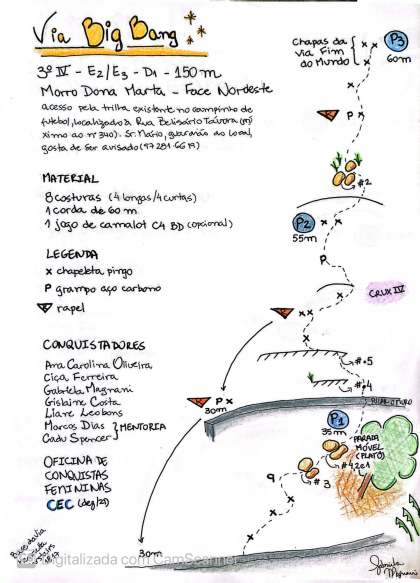 Via Big Bang
3º IV - E2/E3 - D1 - 150m
Morro Dona Marta - Face Nordeste
acesso pela trilha existente no campinho de
futebol, localizado à Rua Belisário Távora (pró
ximo ao nº 340). Sr. Mário, guardião do local,
gosta de ser avisado
MATERIAL
8 costuras (4 longas/4 curtas)
1 corda de 60 m
1 jogo de camalot C4 BD (opcional)
LEGENDA
x chapeleta pingo
P grampo aço carbono
R rapel
CONQUISTADORES
Ana Carolina Oliveira
Ciça Ferreira
Gabriela Magnani
Gislaine Costa
Liane Leobons
Marcos Dias
Cadu Spencer
MENTORIA
OFICINA DE
CONQUISTAS
FEMININAS
CEC (dez/21)
Base da via
30m
Digitalizada com CamScanner
Chapas da
via Fim
do Mundo
P3
60m
R
P
#2
P2
55m
P
CRUX IV
R
#.5
#.4
R
P x
30m
P1
35m
PARADA
MÓVEL
(PLATÔ)
#.4, 2 e 1
#3